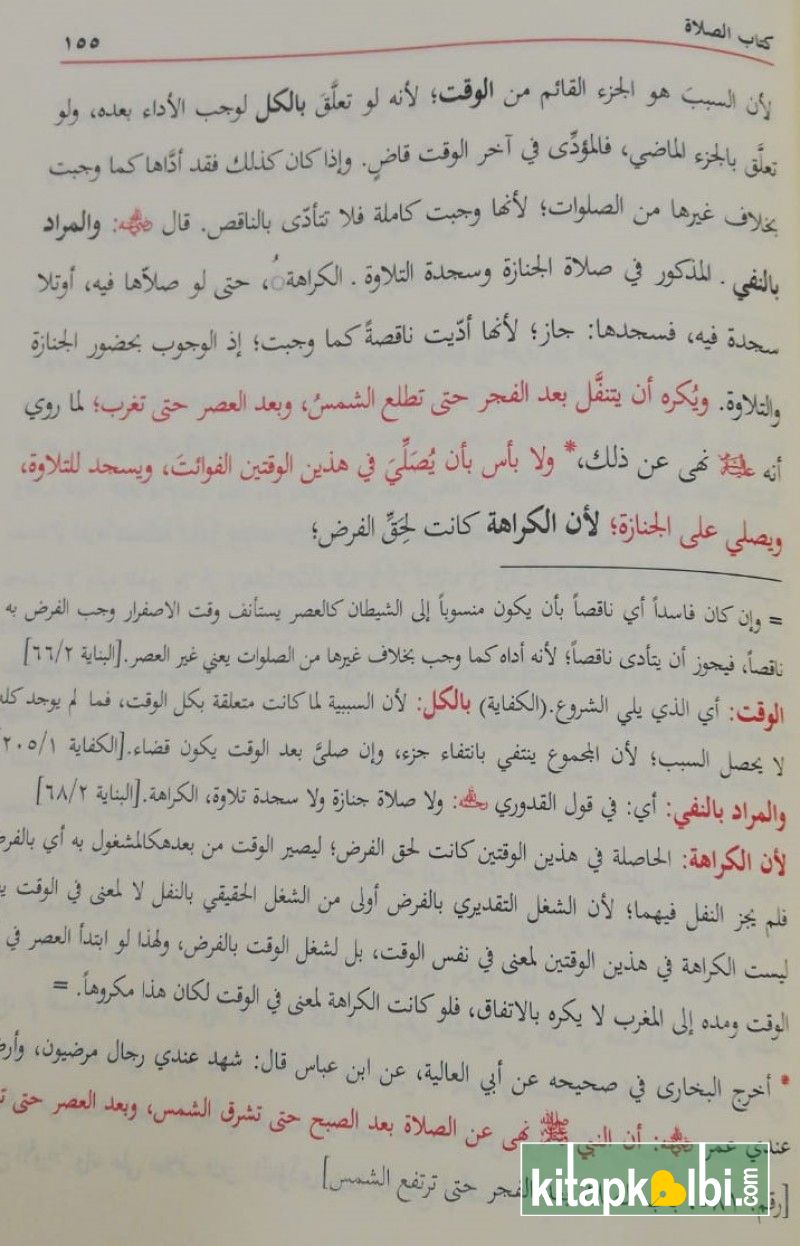 كتاب الصلاة
١٥٥
لأن السببَ هو الجزء القائم من الوقت؛ لأنه لو تعلَّقَ بالكل لوجب الأداء بعده، ولو
تعلَّق بالجزء الماضي، فالمؤدِّى في آخر الوقت قاضٍ. وإذا كان كذلك فقد أدَّاها كما وجبت
بخلاف غيرها من الصلوات؛ لأنها وجبت كاملة فلا تتأدّى بالناقص. قال ﷺ: والمراد
بالنفي. المذكور في صلاة الجنازة وسجدة التلاوة. الكراهةُ، حتى لو صلاّها فيه، أوتلا
سجدة فيه، فسجدها: جاز؛ لأنها أدّيت ناقصةً كما وجبت؛ إذ الوجوب بحضور الجنازة
والتلاوة. ويُكره أن يتنفَّل بعد الفجر حتى تطلع الشمسُ، وبعد العصر حتى تغرب؛ لما روي
أنه نهى عن ذلك،* ولا بأس بأن يُصَلِّيَ في هذين الوقتين الفوائتَ، ويسجد للتلاوة،
ويصلي على الجنازة؛ لأن الكراهة كانت لِحَقِّ الفرض؛
= وإن كان فاسداً أي ناقصاً بأن يكون منسوباً إلى الشيطان كالعصر يستأنف وقت الاصفرار وجب الفرض به
ناقصاً، فيجوز أن يتأدى ناقصاً؛ لأنه أداه كما وجب بخلاف غيرها من الصلوات يعني غير العصر.[البناية ٦٦/٢]
الوقت: أي الذي يلي الشروع.(الكفاية) بالكل: لأن السببية لما كانت متعلقة بكل الوقت، فما لم يوجد كله
لا يحصل السبب؛ لأن المجموع ينتفي بانتفاء جزء، وإن صلىَّ بعد الوقت يكون قضاء.[الكفاية ٢٠٥/١
والمراد بالنفي: أي: في قول القدوري: ولا صلاة جنازة ولا سجدة تلاوة، الكراهة.[البناية ٦٨/٢]
لأن الكراهة: الحاصلة في هذين الوقتين كانت لحق الفرض؛ ليصير الوقت من بعدهكالمشغول به أي بالفرض
فلم يجز النفل فيهما؛ لأن الشغل التقديري بالفرض أولى من الشغل الحقيقي بالنفل لا لمعنى في الوقت
ليست الكراهة في هذين الوقتين لمعنى في نفس الوقت، بل لشغل الوقت بالفرض، ولهذا لو ابتدأ العصر في
الوقت ومده إلى المغرب لا يكره بالاتفاق، فلو كانت الكراهة لمعنى في الوقت لكان هذا مكروهاً. =
* أخرج البخارى في صحيحه عن أبي العالية، عن ابن عباس قال: شهد عندي رجال مرضيون،
عندي عمر: أن النبي ﷺ نهى عن الصلاة بعد الصبح حتى تشرق الشمس، وبعد العصر حتى
[رقم: الفجر حتى ترتفع الشمس]
kitapkalbi.com